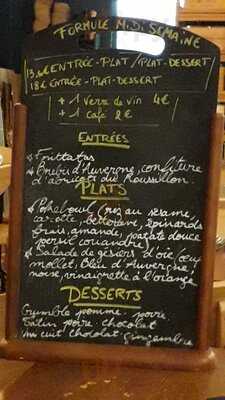 FORMULE MIDI SEMAINE
ENTRÉE-PLAT / PLAT-DESSERT
18€ ENTRÉE-PLAT-DESSERT
+ 1 verre de vin 4€
+ 1 café 2€
ENTRÉES
* Frittatas
* Brebis d'Auvergne, confiture
d'abricots du Roussillon.
PLATS
* Pokebowl (riz au sésame,
carotte, betterave, épinards
frais, amande, patate douce
persil coriandre)
* Salade de gésiers d'oie, œuf
mollet, Bleu d'Auvergne,
noix, vinaigrette à l'orange
DESSERTS
Crumble pomme. poire
Tatin poire. chocolat
Mi cuit chocolat gingembre